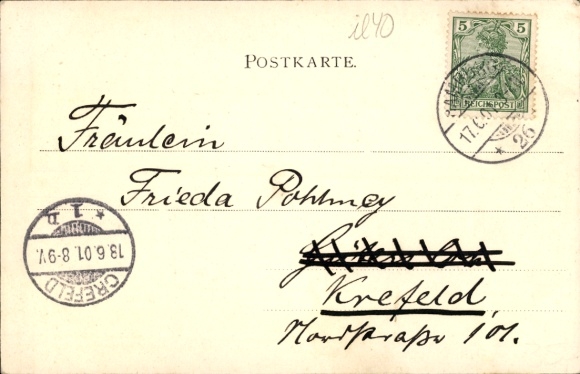 il40
5 5
REICHSPOST
POSTKARTE.
17.6.01
* 26
Fräulein
Frieda Pohlmey
* 1 n
18.6.01.8-9V.
CREFELD
Krefeld,
Nordstraße 101.